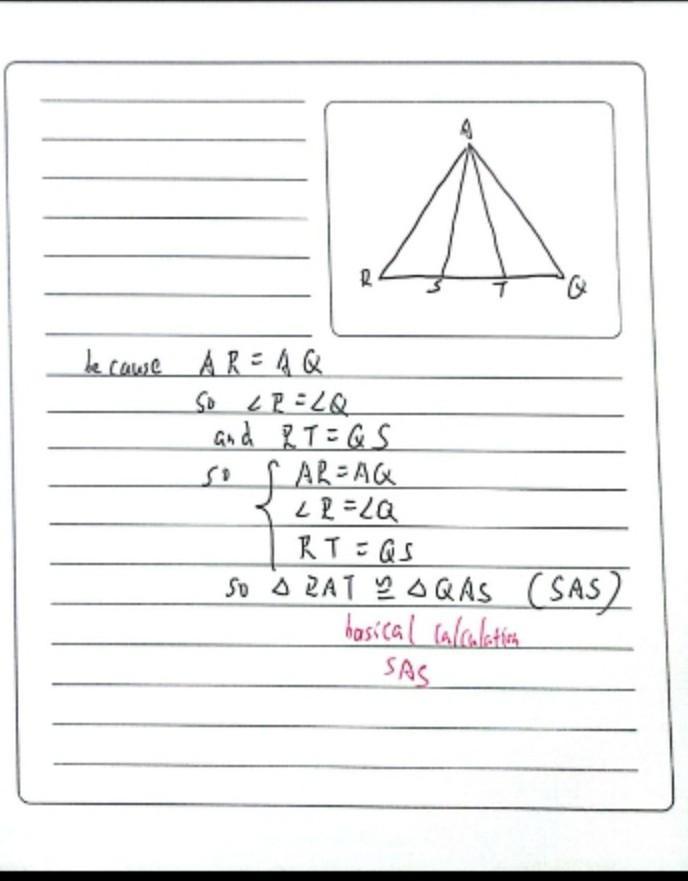 A
R S T Q
because AR = AQ
so ∠R = ∠Q
and RT = QS
so { AR = AQ
∠R = ∠Q
RT = QS
so △RAT ≌ △QAS (SAS)
basical calculation
SAS